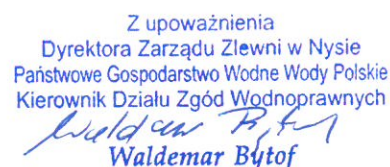 Z upoważnienia
Dyrektora Zarządu Zlewni w Nysie
Państwowe Gospodarstwo Wodne Wody Polskie
Kierownik Działu Zgód Wodnoprawnych
Waldemar Bytof
Waldemar Bytof